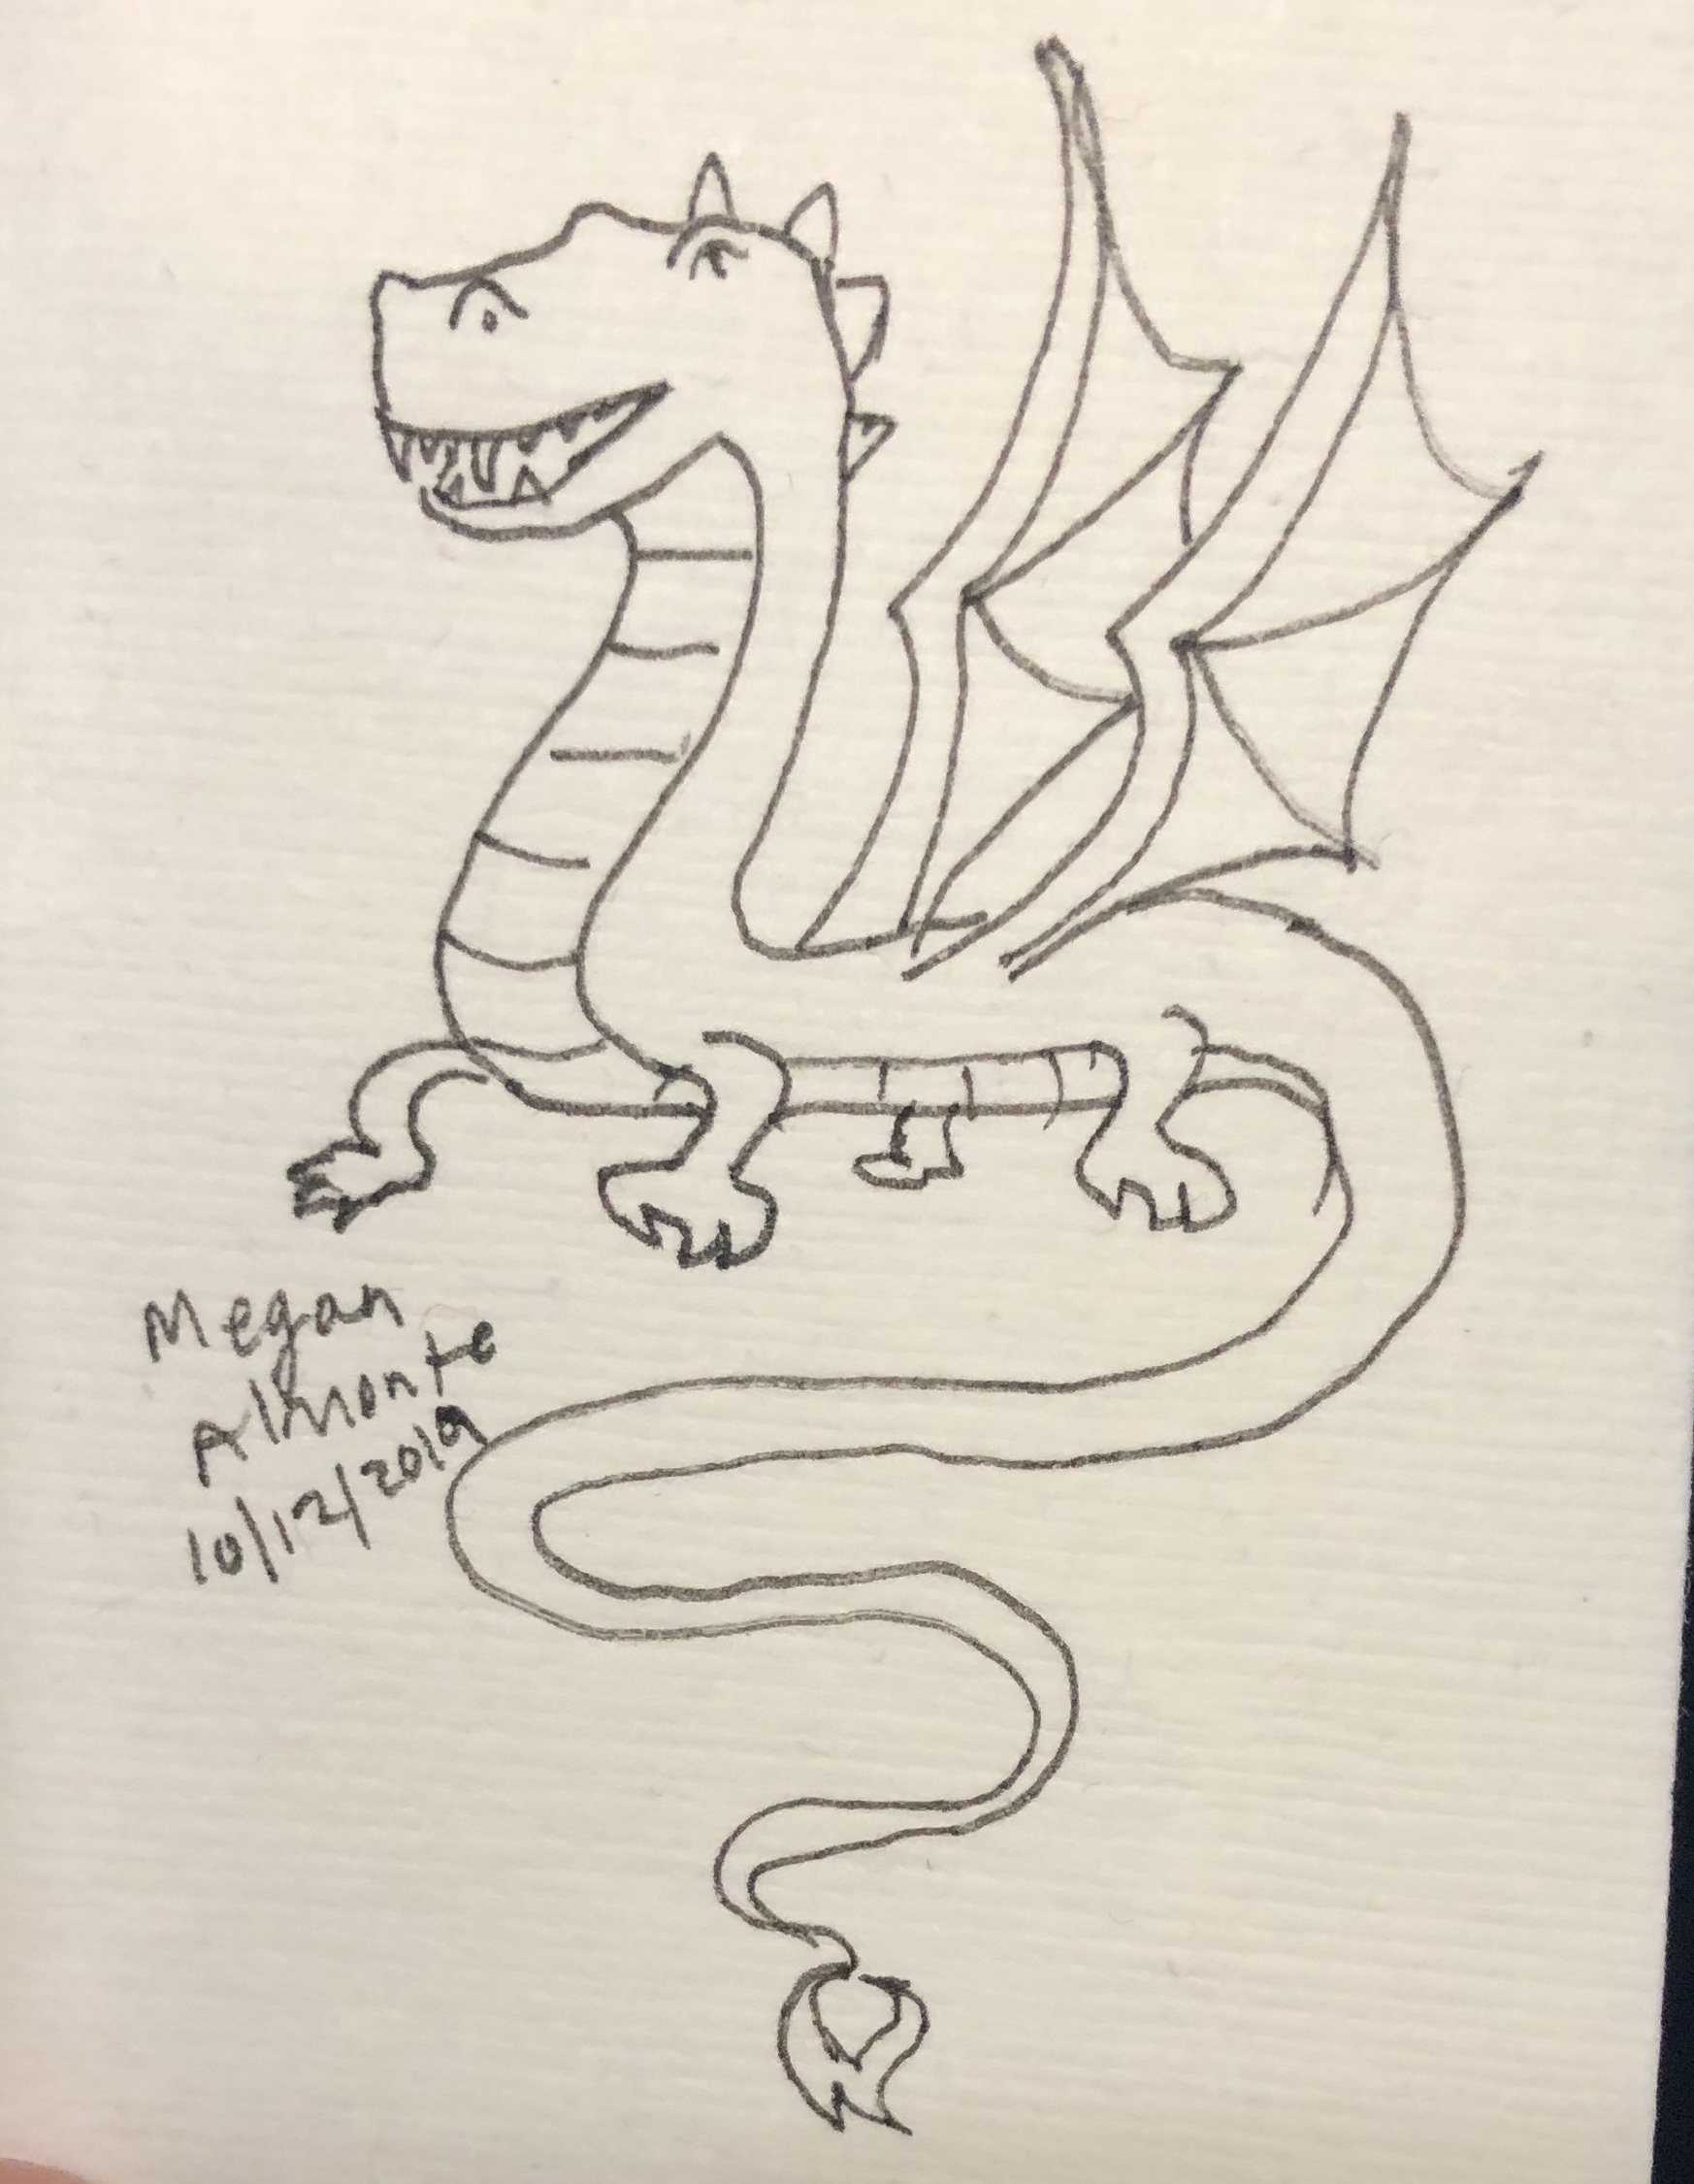 Megan
Almonte
10/12/2019